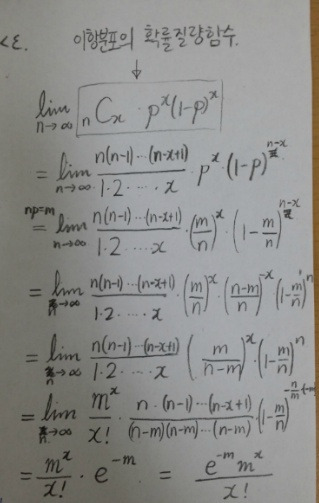 <ε.
이항분포의 확률질량함수.
↓
lim n→∞ nCx · p^x(1-p)^x
= lim n→∞ n(n-1)···(n-x+1) / 1·2·····x · p^x · (1-p)^n-x
np=m = lim n→∞ n(n-1)···(n-x+1) / 1·2·····x · (m/n)^x · (1-m/n)^n-x
= lim n→∞ n(n-1)···(n-x+1) / 1·2·····x · (m/n)^x · (n-m/n)^-x (1-m/n)^n
= lim n→∞ n(n-1)···(n-x+1) / 1·2·····x (m/n-m)^x · (1-m/n)^n
= lim n→∞ m^x/x! · n·(n-1)···(n-x+1) / (n-m)(n-m)···(n-m) (1-m/n)^-n/m
= m^x/x! · e^-m = e^-m m^x / x!